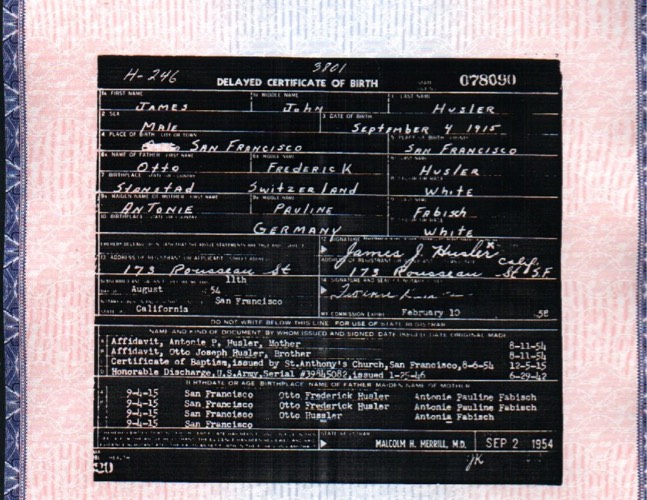 3801
H-246
DELAYED CERTIFICATE OF BIRTH 078090
1a FIRST NAME 1b MIDDLE NAME 1c LAST NAME
JAMES John Husler
2 SEX 3 DATE OF BIRTH
Male September 4 1915
4 PLACE OF BIRTH CITY OR TOWN
San Francisco San Francisco
6a NAME OF FATHER FIRST NAME 6b MIDDLE NAME LAST NAME
Otto Frederick Husler
7 BIRTHPLACE
Stanstad Switzerland White
9a MAIDEN NAME OF MOTHER FIRST NAME MIDDLE NAME
Antonie Pauline Fabisch
10 BIRTHPLACE
Germany White
12 SIGNATURE
James J. Husler
13 ADDRESS OF REGISTRANT OR APPLICANT STREET
Calif.
173 Rousseau St 173 Rousseau St S.F
11th
August 54
San Francisco
California
MY COMMISSION EXPIRES February 10 58
DO NOT WRITE BELOW THIS LINE FOR USE OF STATE REGISTRAR
NAME AND KIND OF DOCUMENT BY WHOM ISSUED AND SIGNED DATE ISSUED DATE ORIGINAL MADE
Affidavit, Antonie P. Husler, Mother 8-11-54
Affidavit, Otto Joseph Husler, Brother 8-11-54
Certificate of Baptism, issued by St.Anthony's Church, San Francisco, 8-6-54 12-5-15
Honorable Discharge, U.S.Army, Serial #39845082, issued 1-25-46 6-29-42
BIRTHDATE OR AGE BIRTHPLACE NAME OF FATHER MAIDEN NAME OF MOTHER
9-4-15 San Francisco Otto Frederick Husler Antonie Pauline Fabisch
9-4-15 San Francisco Otto Frederick Husler Antonie Pauline Fabisch
9-4-15 San Francisco Otto Hussler Antonia Fabisch
9-4-15 San Francisco
STATE REGISTRAR
MALCOLM H. MERRILL, M.D. SEP 2 1954
jk
HEALTH
20